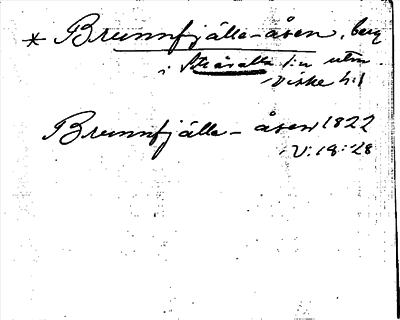 * Brunnfjälle-åsen, berg
i Stråvalla s:n utm.
Viske hd
Brunnfjälle-åsen 1822
V. 19:28